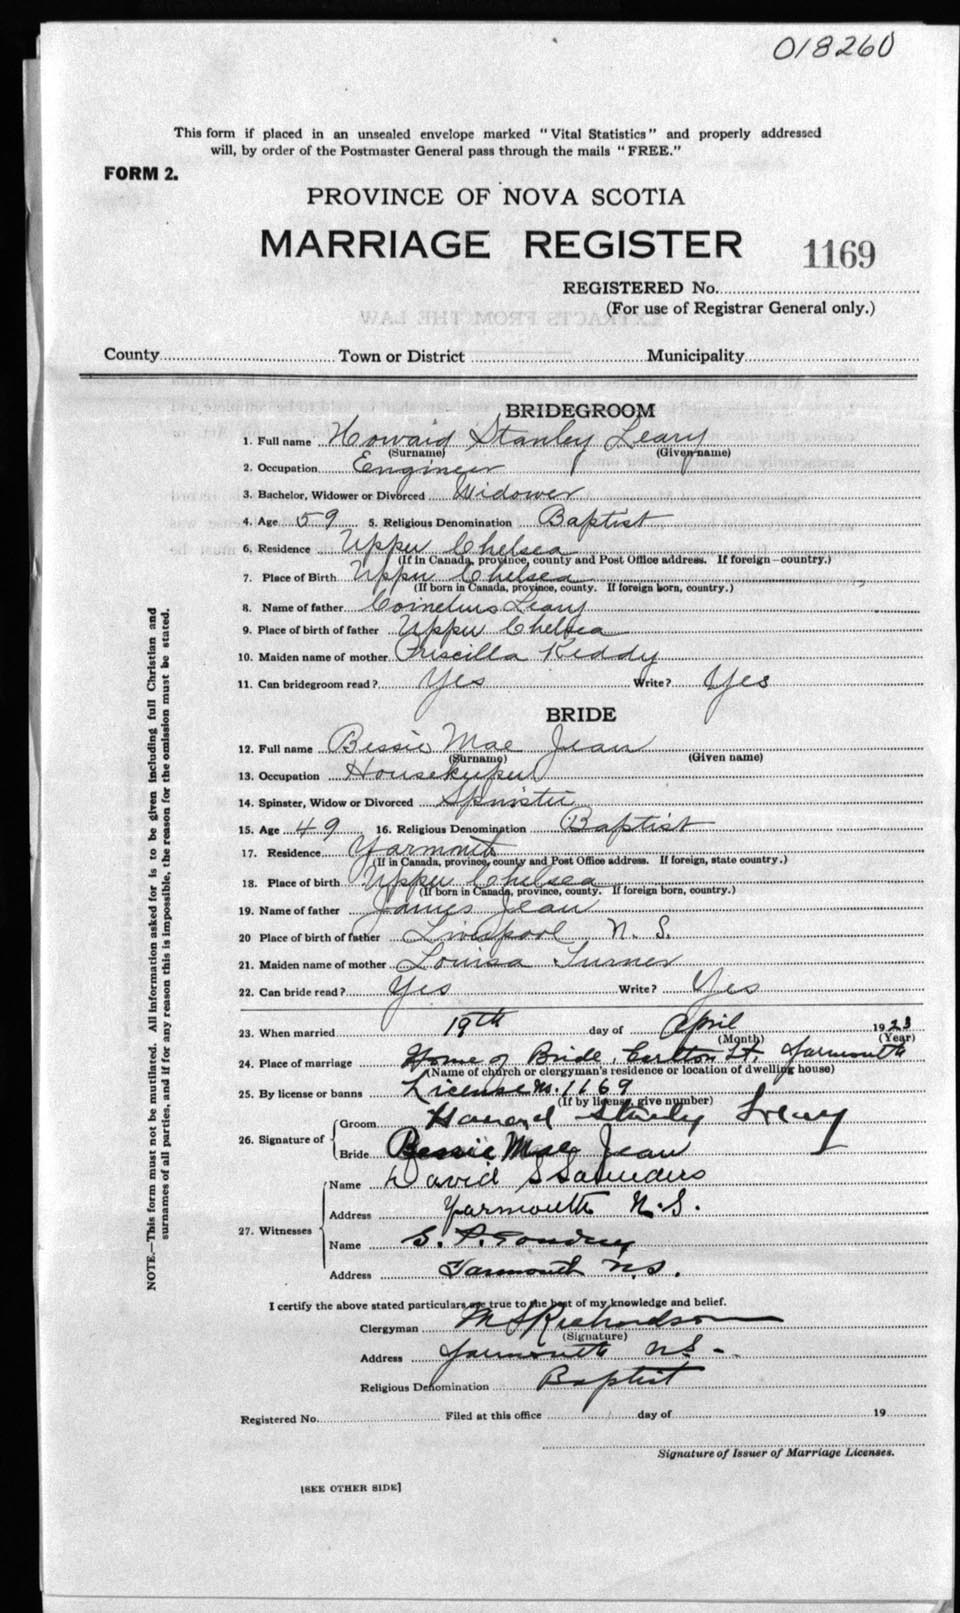 018260
This form if placed in an unsealed envelope marked "Vital Statistics" and properly addressed
will, by order of the Postmaster General pass through the mails "FREE."
FORM 2.
PROVINCE OF NOVA SCOTIA
MARRIAGE REGISTER
1169
REGISTERED No.
(For use of Registrar General only.)
County Town or District Municipality
BRIDEGROOM
1. Full name Howard Stanley Leary
(Surname) (Given name)
2. Occupation Engineer
3. Bachelor, Widower or Divorced Widower
4. Age 59 5. Religious Denomination Baptist
6. Residence Upper Chelsea
(If in Canada, province, county and Post Office address. If foreign—country.)
7. Place of Birth Upper Chelsea
(If born in Canada, province, county. If foreign born, country.)
8. Name of father Cornelius Leary
9. Place of birth of father Upper Chelsea
10. Maiden name of mother Priscilla Keddy
11. Can bridegroom read? Yes Write? Yes
BRIDE
12. Full name Bessie Mae Jean
(Surname) (Given name)
13. Occupation Housekeeper
14. Spinster, Widow or Divorced Spinster
15. Age 49 16. Religious Denomination Baptist
17. Residence Yarmouth
(If in Canada, province, county and Post Office address. If foreign, state country.)
18. Place of birth Upper Chelsea
(If born in Canada, province, county. If foreign born, country.)
19. Name of father James Jean
20 Place of birth of father Liverpool N. S.
21. Maiden name of mother Louisa Turner
22. Can bride read? Yes Write? Yes
23. When married 19th day of April 1923
(Month) (Year)
24. Place of marriage Home of Bride, Carlton St. Yarmouth
(Name of church or clergyman's residence or location of dwelling house)
25. By license or banns License No. 1169
(If by license, give number)
26. Signature of Groom Howard Stanley Leary
Bride Bessie Mae Jean
27. Witnesses Name David S Saunders
Address Yarmouth N.S.
Name S. P.
Address Yarmouth N.S.
I certify the above stated particulars are true to the best of my knowledge and belief.
Clergyman M S Richardson
(Signature)
Address Yarmouth N.S.
Religious Denomination Baptist
Registered No. Filed at this office day of 19
Signature of Issuer of Marriage Licenses.
[SEE OTHER SIDE]
NOTE.—This form must not be mutilated. All information asked for is to be given including full Christian and
surnames of all parties, and if for any reason this is impossible, the reason for the omission must be stated.